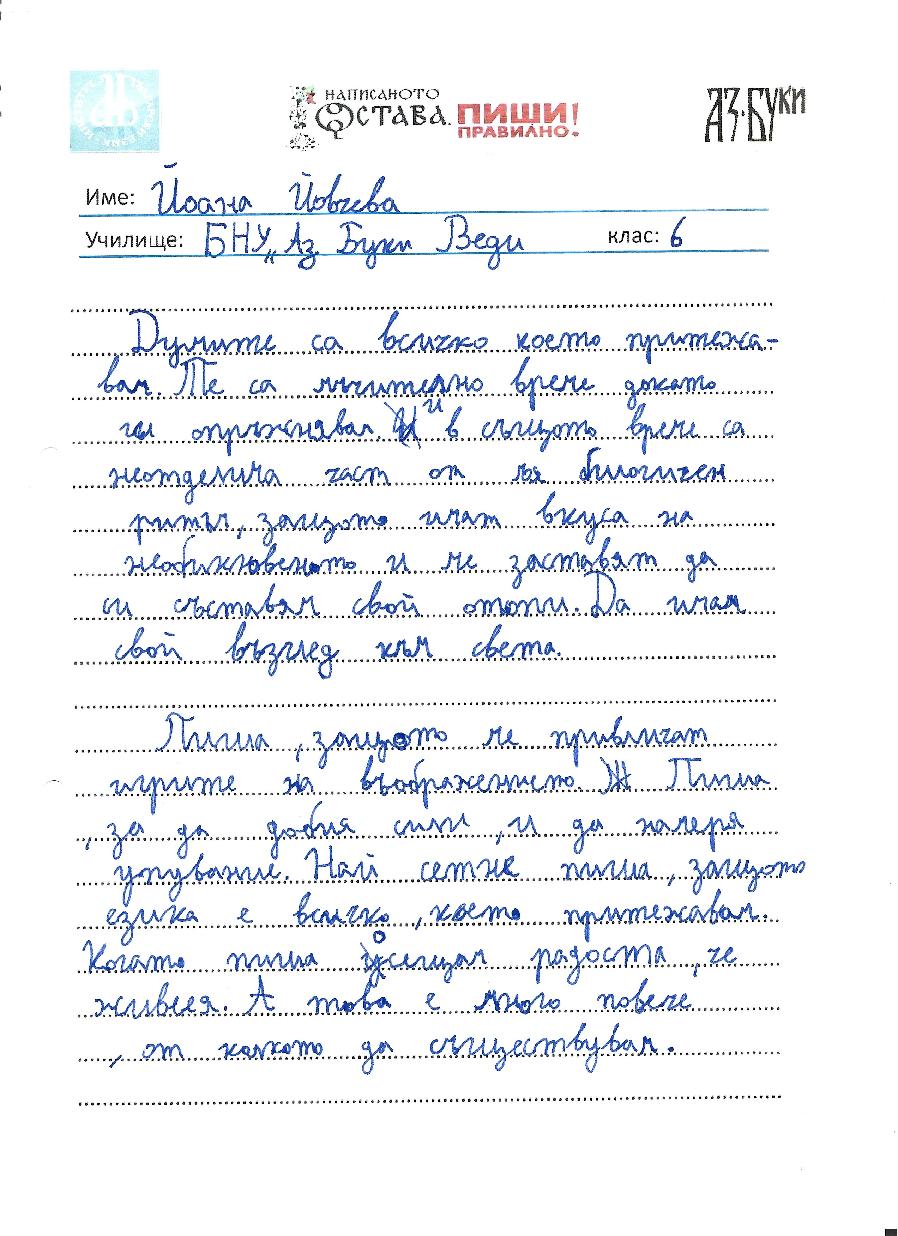 НАПИСАНОТО
ОСТАВА. ПИШИ!
ПРАВИЛНО!
АЗ·БУКИ
Име: Йоана Йовчева
Училище: БНУ „Аз Буки Веди клас: 6
Думите са всичко което притежа-
вам. Те са мъчително време докато
ги опръжнявам и в същото време са
неотделима част от мя билогичен
ритъм, защото имат вкуса на
необикновеното и ме заставят да
си съставям свой отопи. Да имам
свой възглед към света.
Пиша, защото ме привличат
игрите на въображението. Пиша
, за да добия сили, и да намеря
упувание. Най сетне пиша, защото
езика е всичко, което притежавам.
Когато пиша осещам радоста, че
живея. А това е много повече
, от колкото да съществувам.